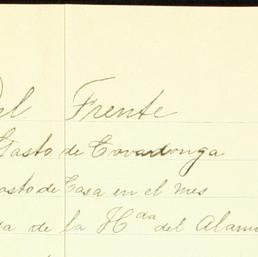 Del Frente
Gasto de Covadonga
Gasto de Casa en el mes
de la Hda del Alam